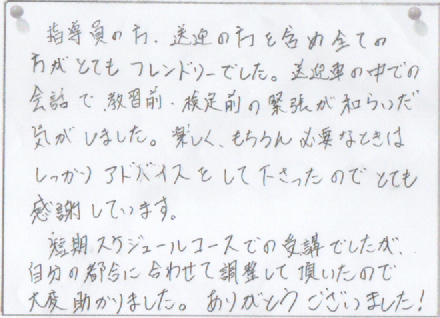 指導員の方、送迎の方を含め全ての
方がとてもフレンドリーでした。送迎車の中での
会話で、教習前・検定前の緊張が和らいだ
気がしました。楽しく、もちろん必要なときは
しっかりアドバイスをして下さったのでとても
感謝しています。
短期スケジュールコースでの受講でしたが、
自分の都合に合わせて調整して頂いたので
大変助かりました。ありがとうございました!